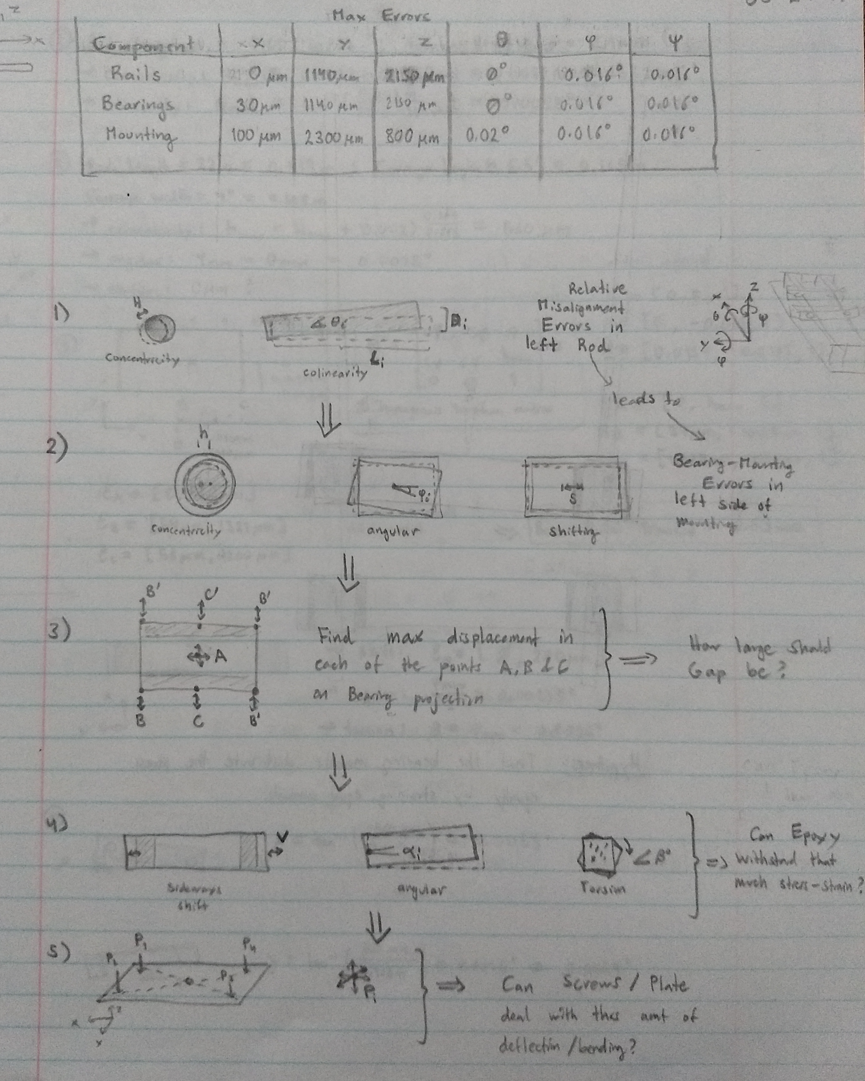 Max Errors
Component X Y Z θ φ ψ
Rails 0 μm 1140 μm 2150 μm 0° 0.016° 0.016°
Bearings 30 μm 1140 μm 2150 μm 0° 0.016° 0.016°
Mounting 100 μm 2300 μm 800 μm 0.02° 0.016° 0.016°
1)
H
Concentrcity
∠θi
Li
colinearity
Relative
Misalignment
Errors in
left Rod
X
Z
θ
φ
Y
φ
leads to
2)
h
Concentrcity
φi
angular
S
shifting
Bearing-Mounting
Errors in
left side of
mounting
3)
B' C' B'
A
B C B'
Find max displacement in
each of the points A, B & C
on Bearing projection
How large should
Gap be?
4)
V
Sideways
shift
αi
angular
∠B°
Torsion
Can Epoxy
withstand that
much stress-strain?
5)
P1
P4
Pi
Can Screws / Plate
deal with this amt of
deflection/bending?